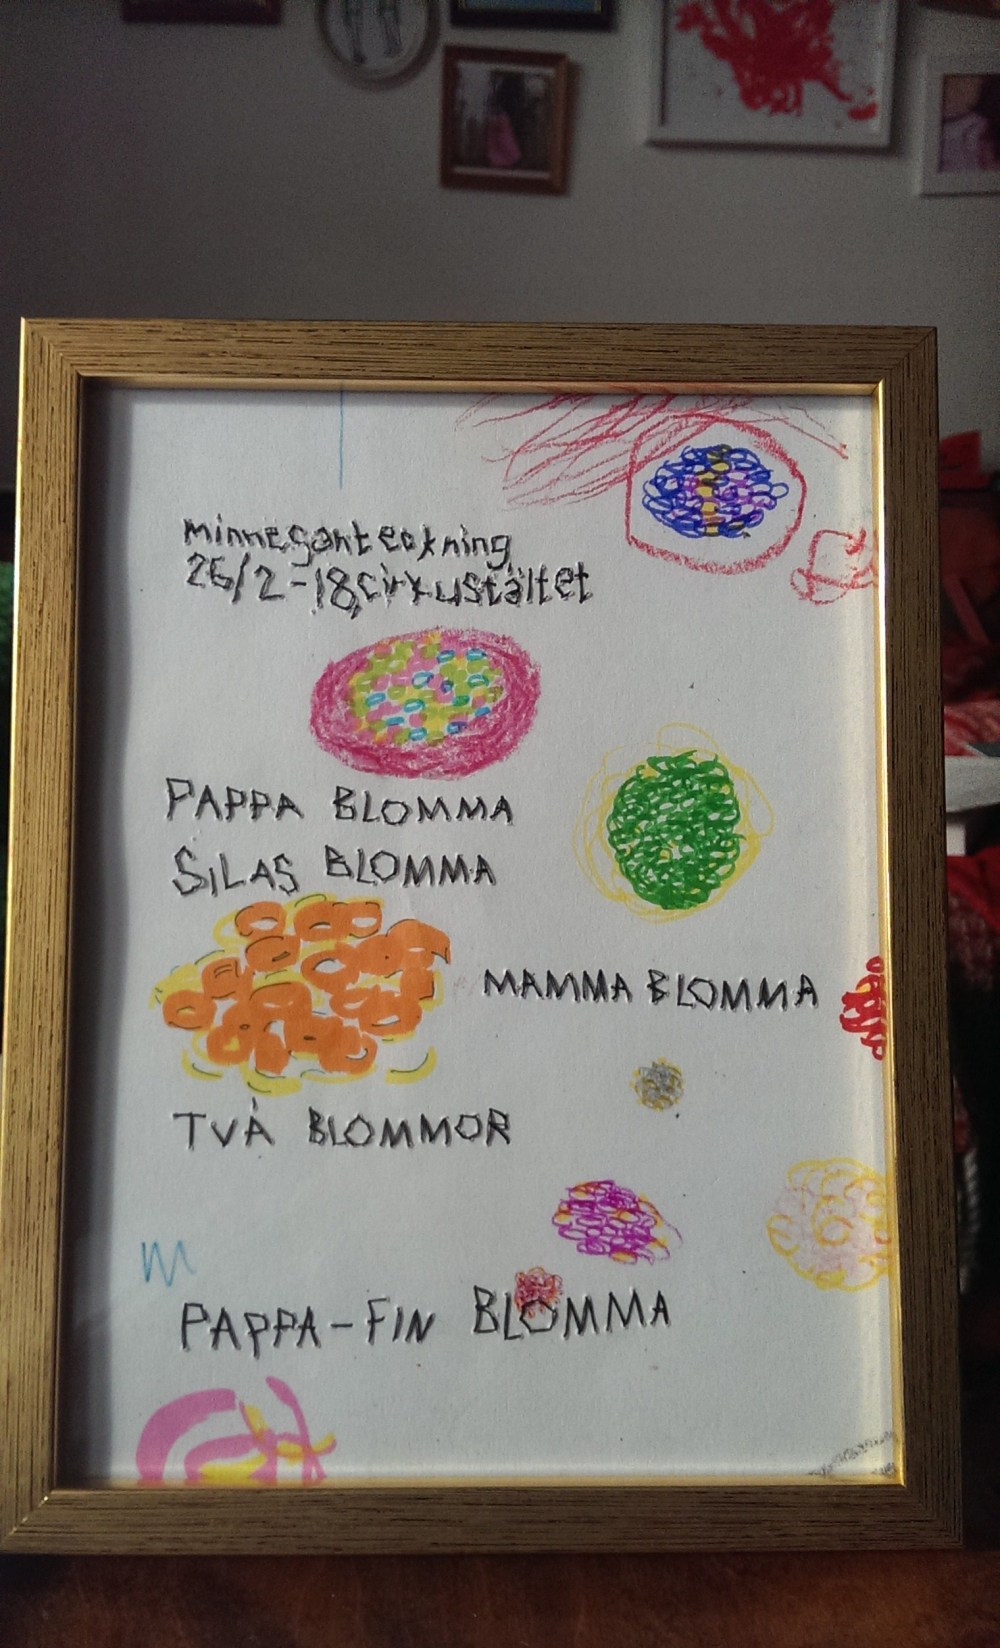 minnesanteckning
26/2-18, cirkustältet
PAPPA BLOMMA
SILAS BLOMMA
MAMMA BLOMMA
TVÅ BLOMMOR
PAPPA-FIN BLOMMA